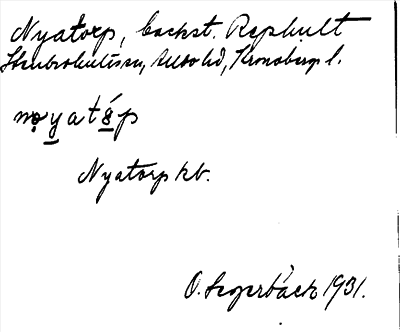 Nyatorp, backst. Raphult
Stenbrohult sn, Allbo hd, Kronobergs l.
nyatåp
Nyatorp kb.
O. Segerbäck 1931.